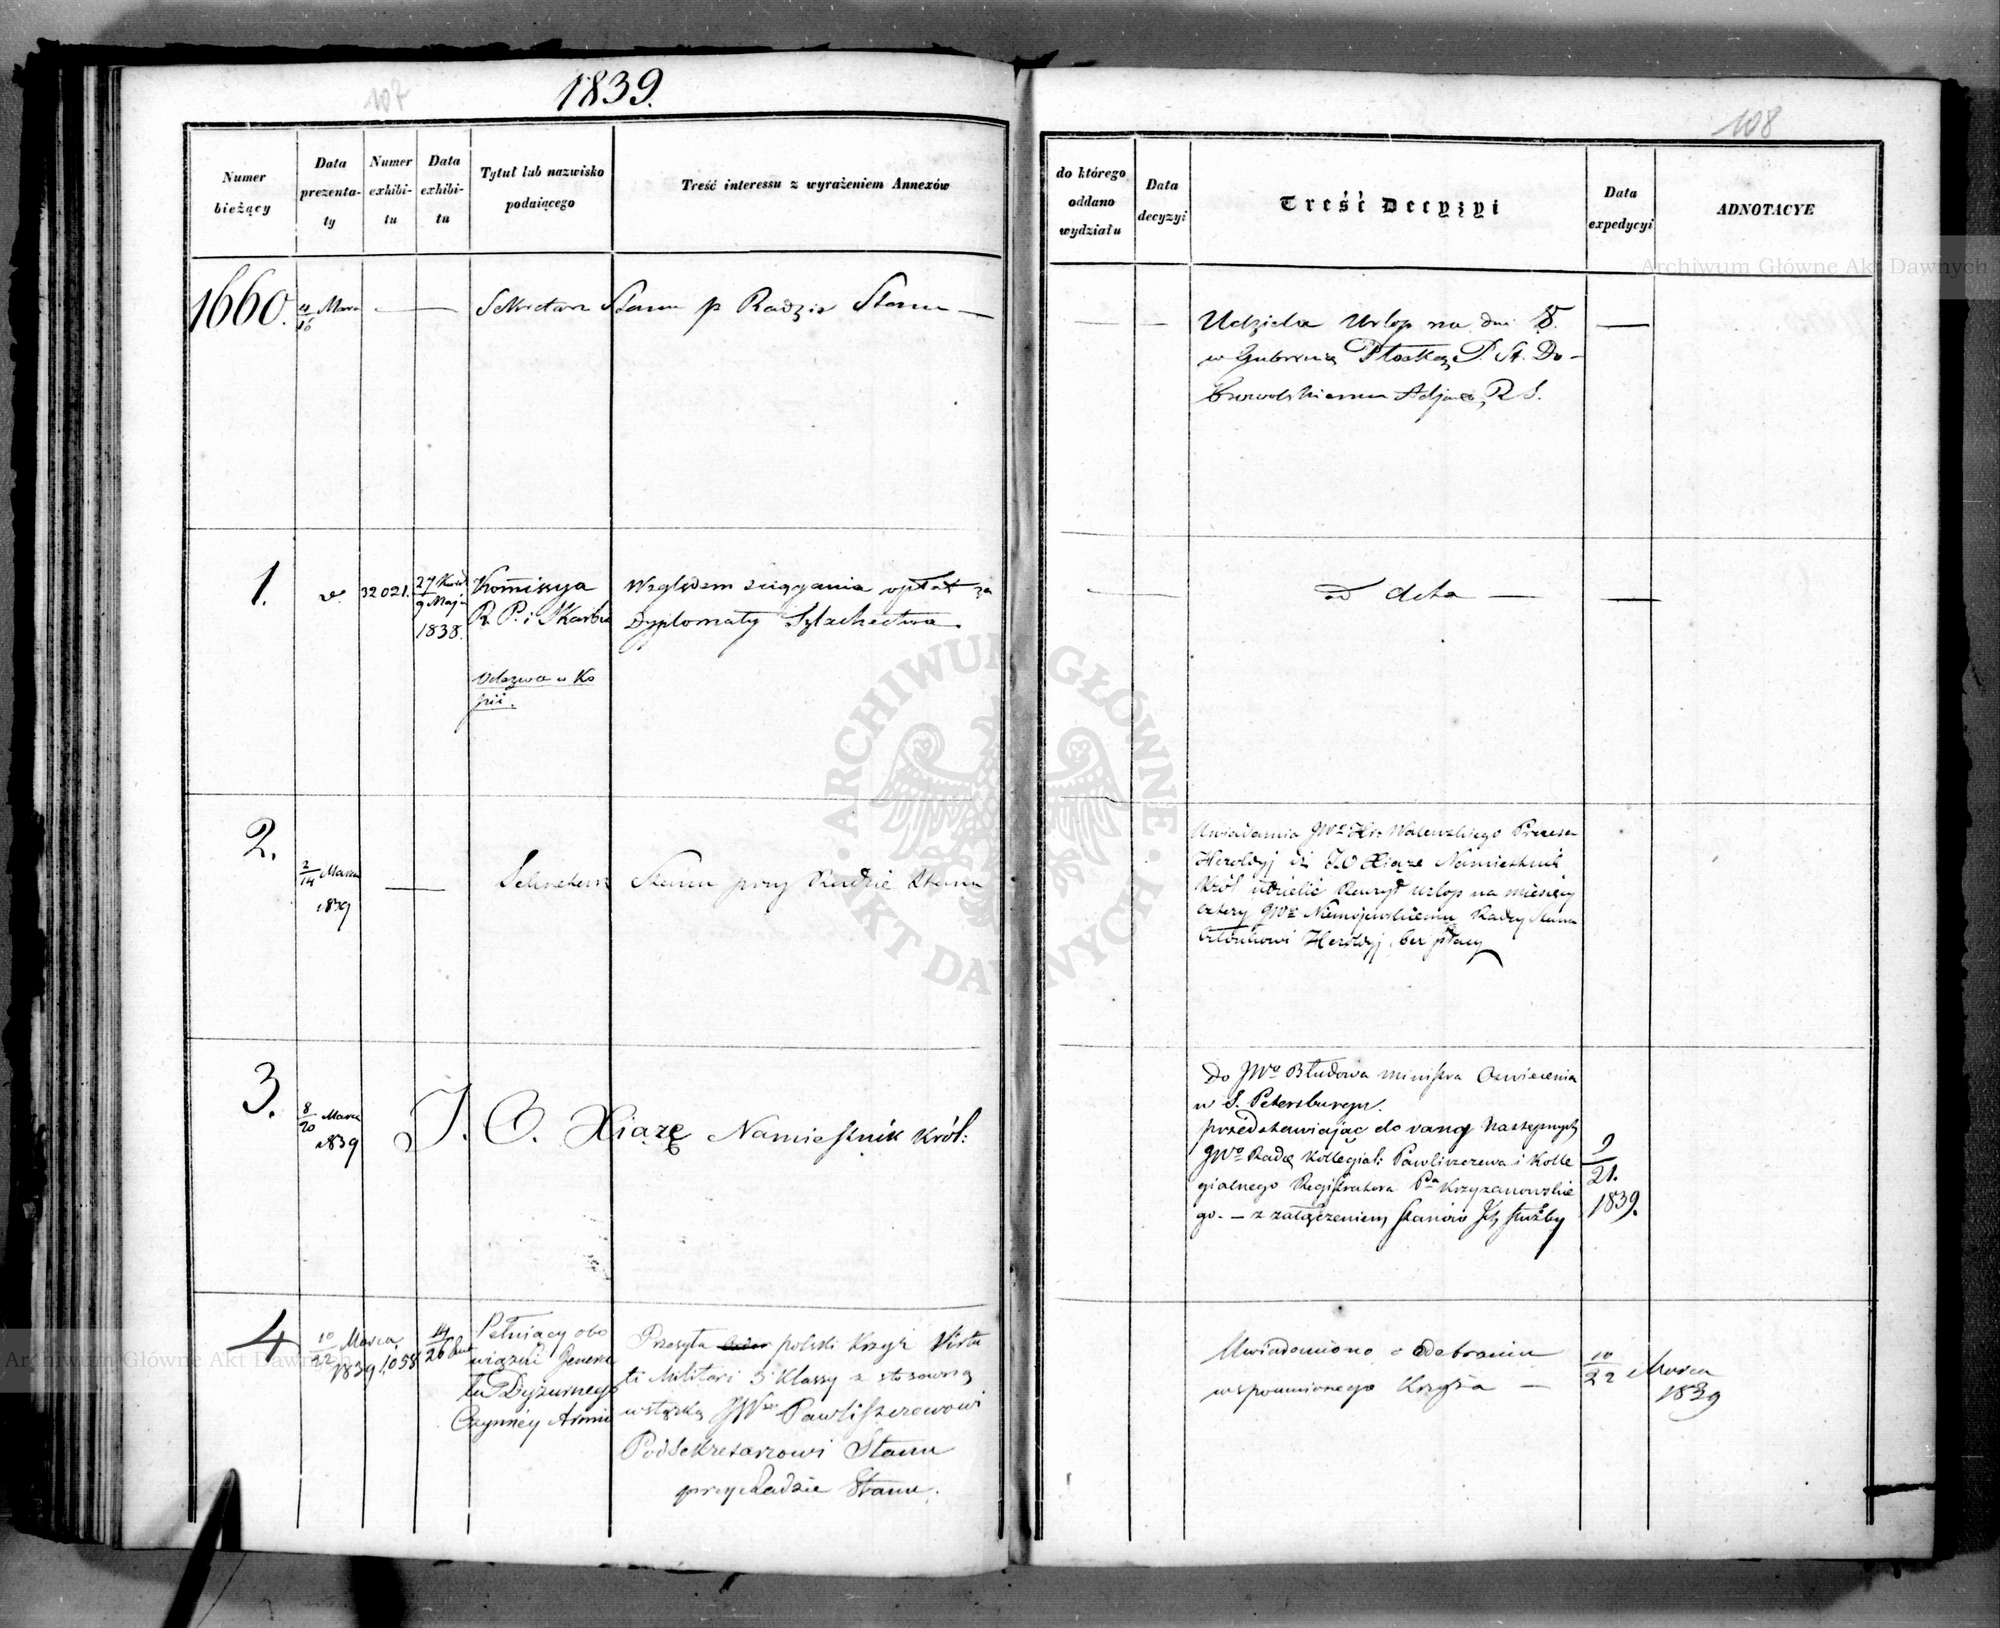 107
1839.
108
Numer bieżący
Data prezentaty
Numer exhibitu
Data exhibitu
Tytuł lub nazwisko podaiącego
Treść interessu z wyrażeniem Annexów
do którego oddano wydziału
Data decyzyi
Treść Decyzyi
Data expedycyi
ADNOTACYE
1660.
4/16 Marca
Sekretarz Stanu p Radzie Stanu —
Udziela Urlop na dni 8.
w Gubernią Płocką P. St. Do-
browolskiemu Adjun R S.
1.
32021.
27 Kwiet
9 Maja
1838.
Kommissya
R. P. i Skarbu
Odezwa w Ko
pii.
Względem ściągania opłat za
Dyplomaty Szlachectwa
ad acta —
2.
2/14 Marca
1839
Sekretarz Stanu przy Radzie Stanu
Uwiadamia JWo Hr. Walewskiego Prezesa
Heroldyi iż J.O Xiąże Namiestnik
Król udzielić raczył urlop na miesięcy
cztery JWu Niemojewskiemu Radcy Stanu
Członkowi Heroldyi, bez płacy
3.
8/20 Marca
1839
J. O. Xiążę Namiestnik Król:
Do JWo Błudowa ministra Oswiecenia
w S. Petersburgu.
przedstawiając do rang następnych
JWo Radcę Kollegial: Pawliszczewa i Kolle
gialnego Registratora Pa Krzyżanowskie
go. — z załączeniem stanów Ich służby
9/21.
1839.
4
10/22 Marca
1839
1058
14/26
Pełniący obo
wiązki Genera
ła Dyżurnego
Czynney Armii
Przesyła polski Krzyż Virtu
ti Militari 5 Klassy z stosowną
wstążką JWu Pawliszczewowi
Podsekretarzowi Stanu
przy Radzie Stanu.
Uwiadomiono o odebraniu
wspomnionego Krzyża —
10/22 Marca
1839
Archiwum Główne Akt Dawnych
ARCHIWUM GŁÓWNE · AKT DAWNYCH ·
Archiwum Główne Akt Dawnych